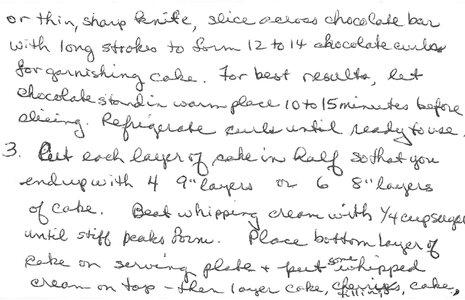 or thin, sharp knife, slice across chocolate bar
with long strokes to form 12 to 14 chocolate curls
for garnishing cake. For best results, let
chocolate stand in warm place 10 to 15 minutes before
slicing. Refrigerate curls until ready to use.
3. Cut each layer of cake in half so that you
end up with 4 9" layers or 6 8" layers
of cake. Beat whipping cream with 1/4 cup sugar
until stiff peaks form. Place bottom layer of
cake on serving plate + put some whipped
cream on top - then layer cake, cherries, cake,
filling